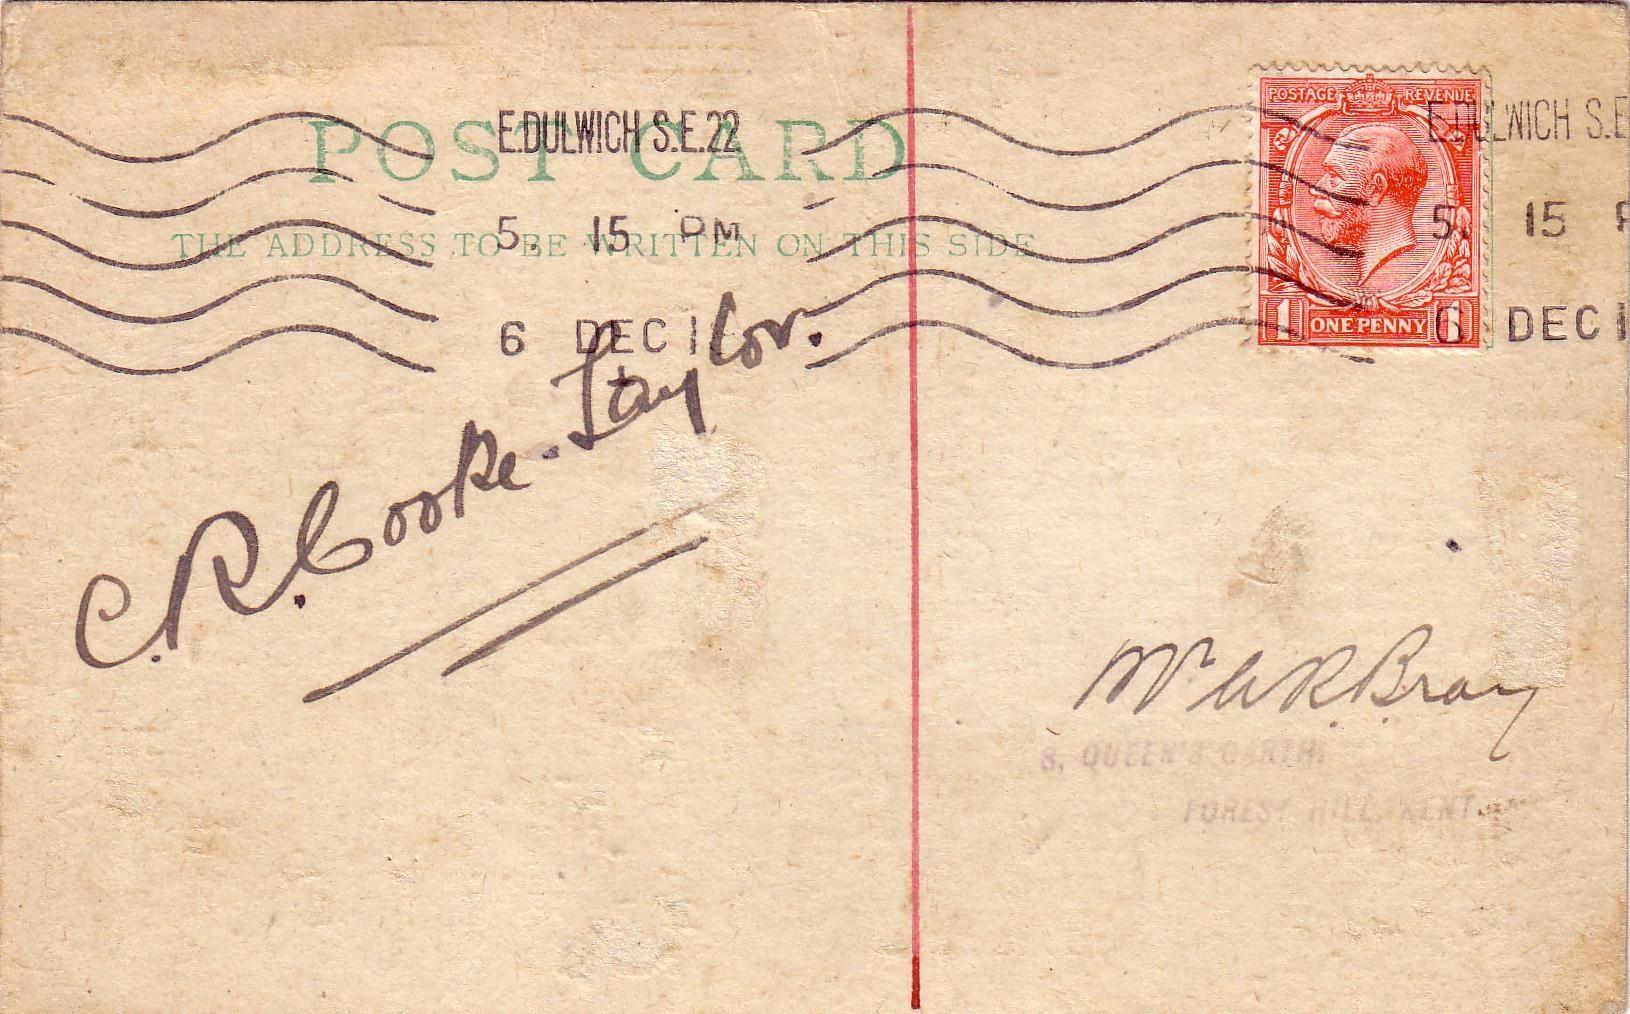 POST CARD
THE ADDRESS TO BE WRITTEN ON THIS SIDE
E.DULWICH S.E.22
5. 15 PM
6 DEC 1
POSTAGE REVENUE
1 ONE PENNY
E.DULWICH S.E
5. 15 P
6 DEC 1
C. R. Cooke-Taylor.
Mr A R. Bray
8, QUEEN'S GARTH,
FOREST HILL, KENT